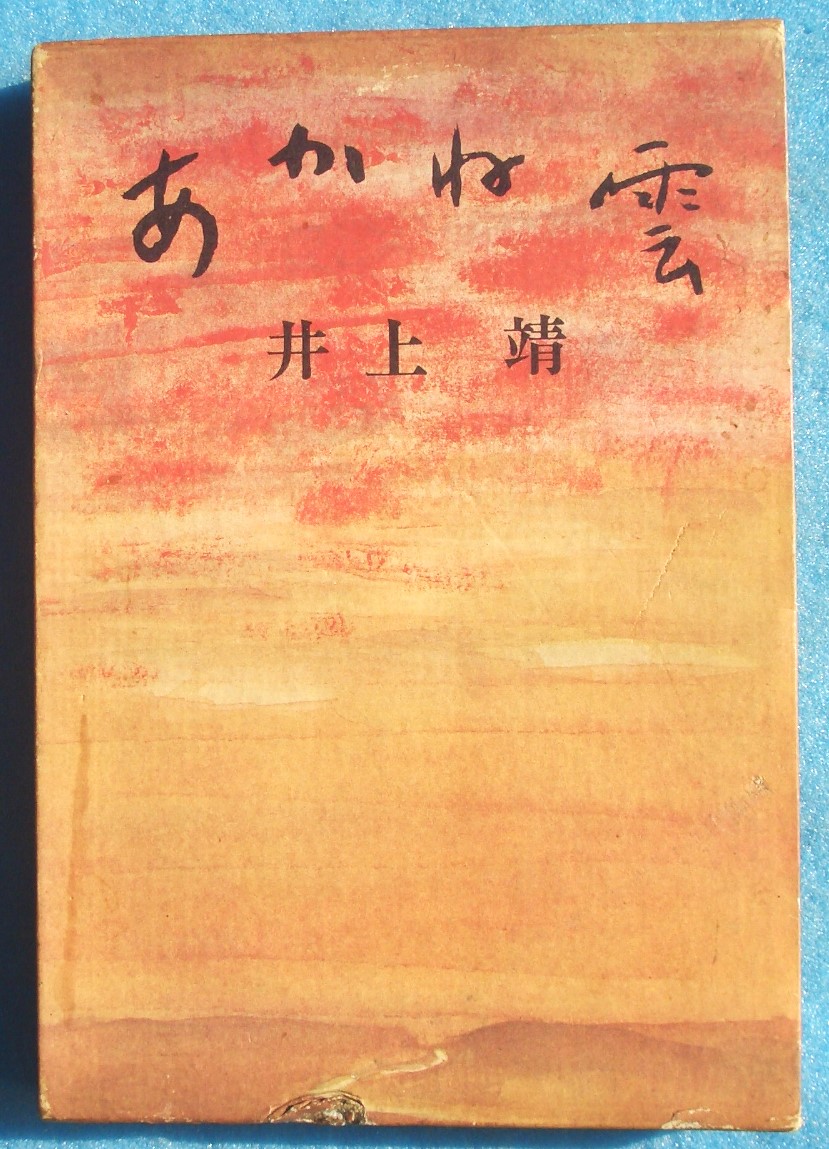 あかね雲
井上靖